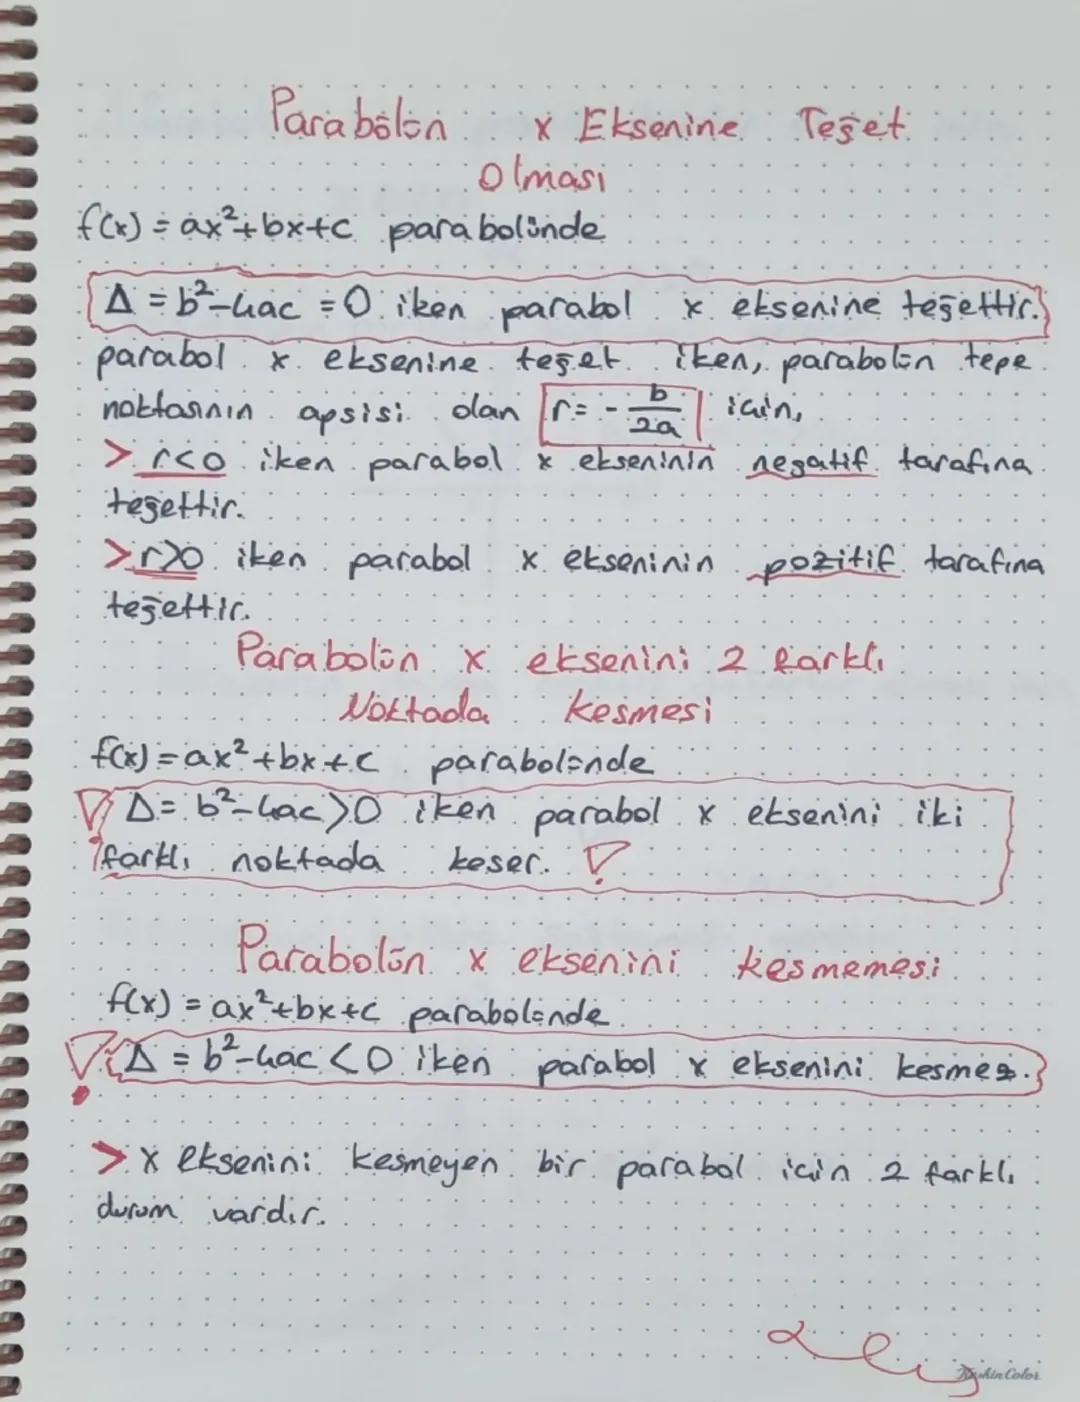 Parabolün x Eksenine Teğet
Olması
f(x) = ax²+bx+c parabolünde
Δ = b²-4ac = 0 iken parabol x eksenine teğettir.
parabol x eksenine teğet iken, parabolün tepe
noktasının apsisi olan r = - b/2a için,
> r<0 iken parabol x ekseninin negatif tarafına
teğettir.
> r>0 iken parabol x ekseninin pozitif tarafına
teğettir.
Parabolün x eksenini 2 farklı
Noktada kesmesi
f(x) = ax²+bx+c parabolünde
Δ = b²-4ac>0 iken parabol x eksenini iki
farklı noktada keser.
Parabolün x eksenini kesmemesi
f(x) = ax²+bx+c parabolünde
Δ = b²-4ac <0 iken parabol x eksenini kesmez.
> x eksenini kesmeyen bir parabol için 2 farklı
durum vardır.